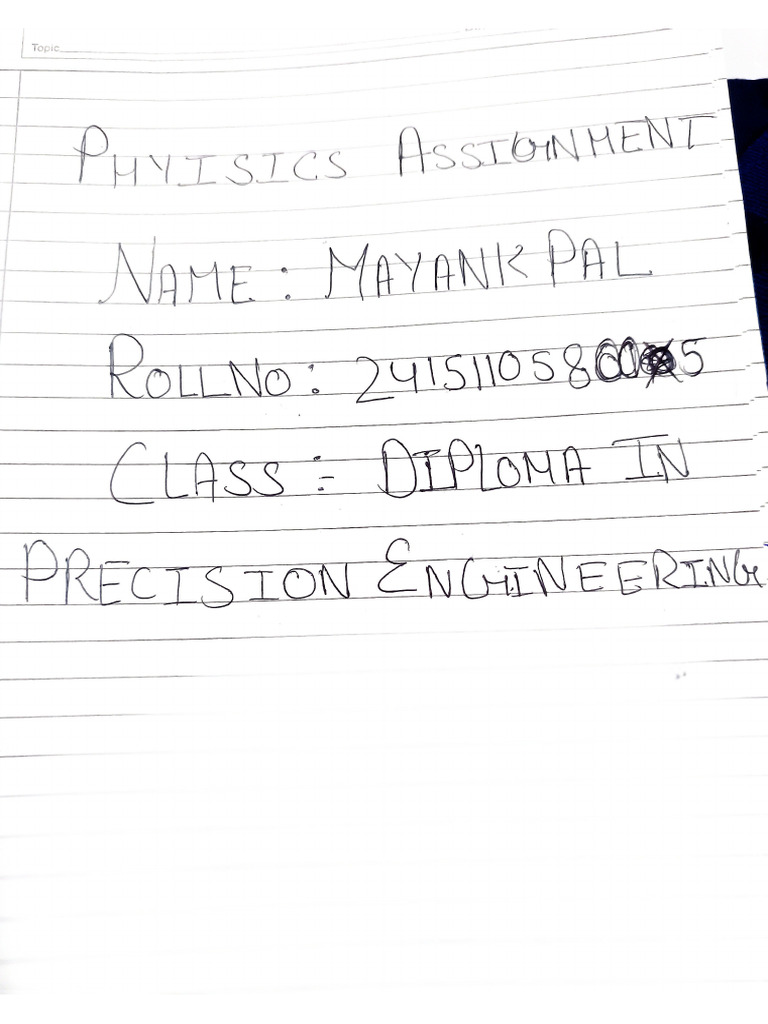 Topic
PHYISICS ASSIGNMENT
NAME : MAYANK PAL
ROLLNO :
CLASS :- DIPLOMA IN
PRECISION ENGINEERING